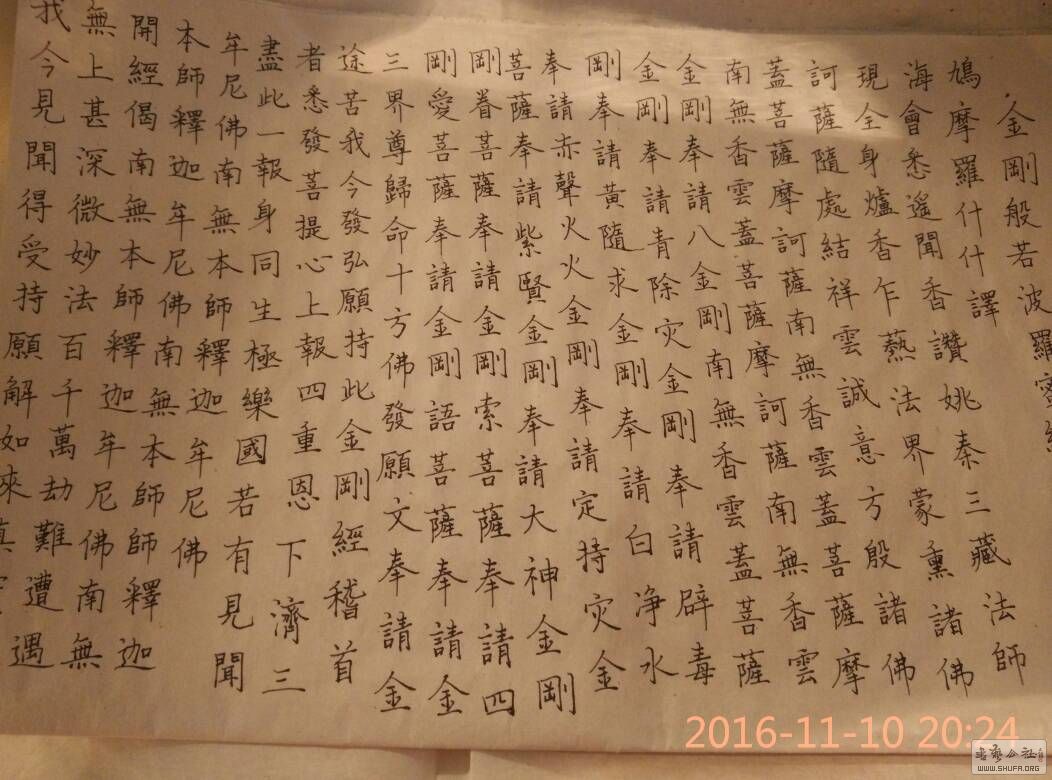 金剛般若波羅蜜經
鳩摩羅什什譯
海會悉遙聞香讚姚秦三藏法師
現全身爐香乍爇法界蒙熏諸佛
訶薩隨處結祥雲誠意方殷諸佛
蓋菩薩摩訶薩南無香雲蓋菩薩摩
南無香雲蓋菩薩摩訶薩南無香雲
金剛奉請八金剛南無香雲蓋菩薩
金剛奉請青除灾金剛奉請辟毒
剛奉請黃隨求金剛奉請白净水
奉請赤聲火火金剛奉請定持灾金
菩薩奉請紫賢金剛奉請大神金剛
剛眷菩薩奉請金剛索菩薩奉請四
剛愛菩薩奉請金剛語菩薩奉請金
三界尊歸命十方佛發願文奉請金
途苦我今發弘願持此金剛經稽首
者悉發菩提心上報四重恩下濟三
盡此一報身同生極樂國若有見聞
牟尼佛南無本師釋迦牟尼佛
本師釋迦牟尼佛南無本師師釋迦
開經偈南無本師釋迦牟尼佛南無
無上甚深微妙法百千萬劫難遭遇
我今見聞得受持願解如來真
2016-11-10 20:24
WWW.SHUFA.ORG